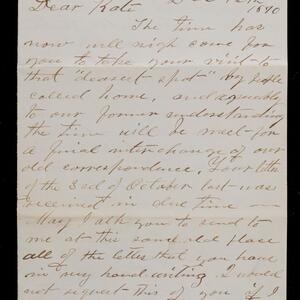 Dear Kate Dec 12th
1890
The time has
now well nigh come for
you to take your visit to
that "dearest spot" by people
called home, and agreeably
to our former understanding
the time will be meet for
a final interchange of our
old correspondence, Your letter
of the 3rd of October last was
received in due time —
May I ask you to send to
me at this same old place
all of the letters that you have
in my hand writing I would
not request this of you if I